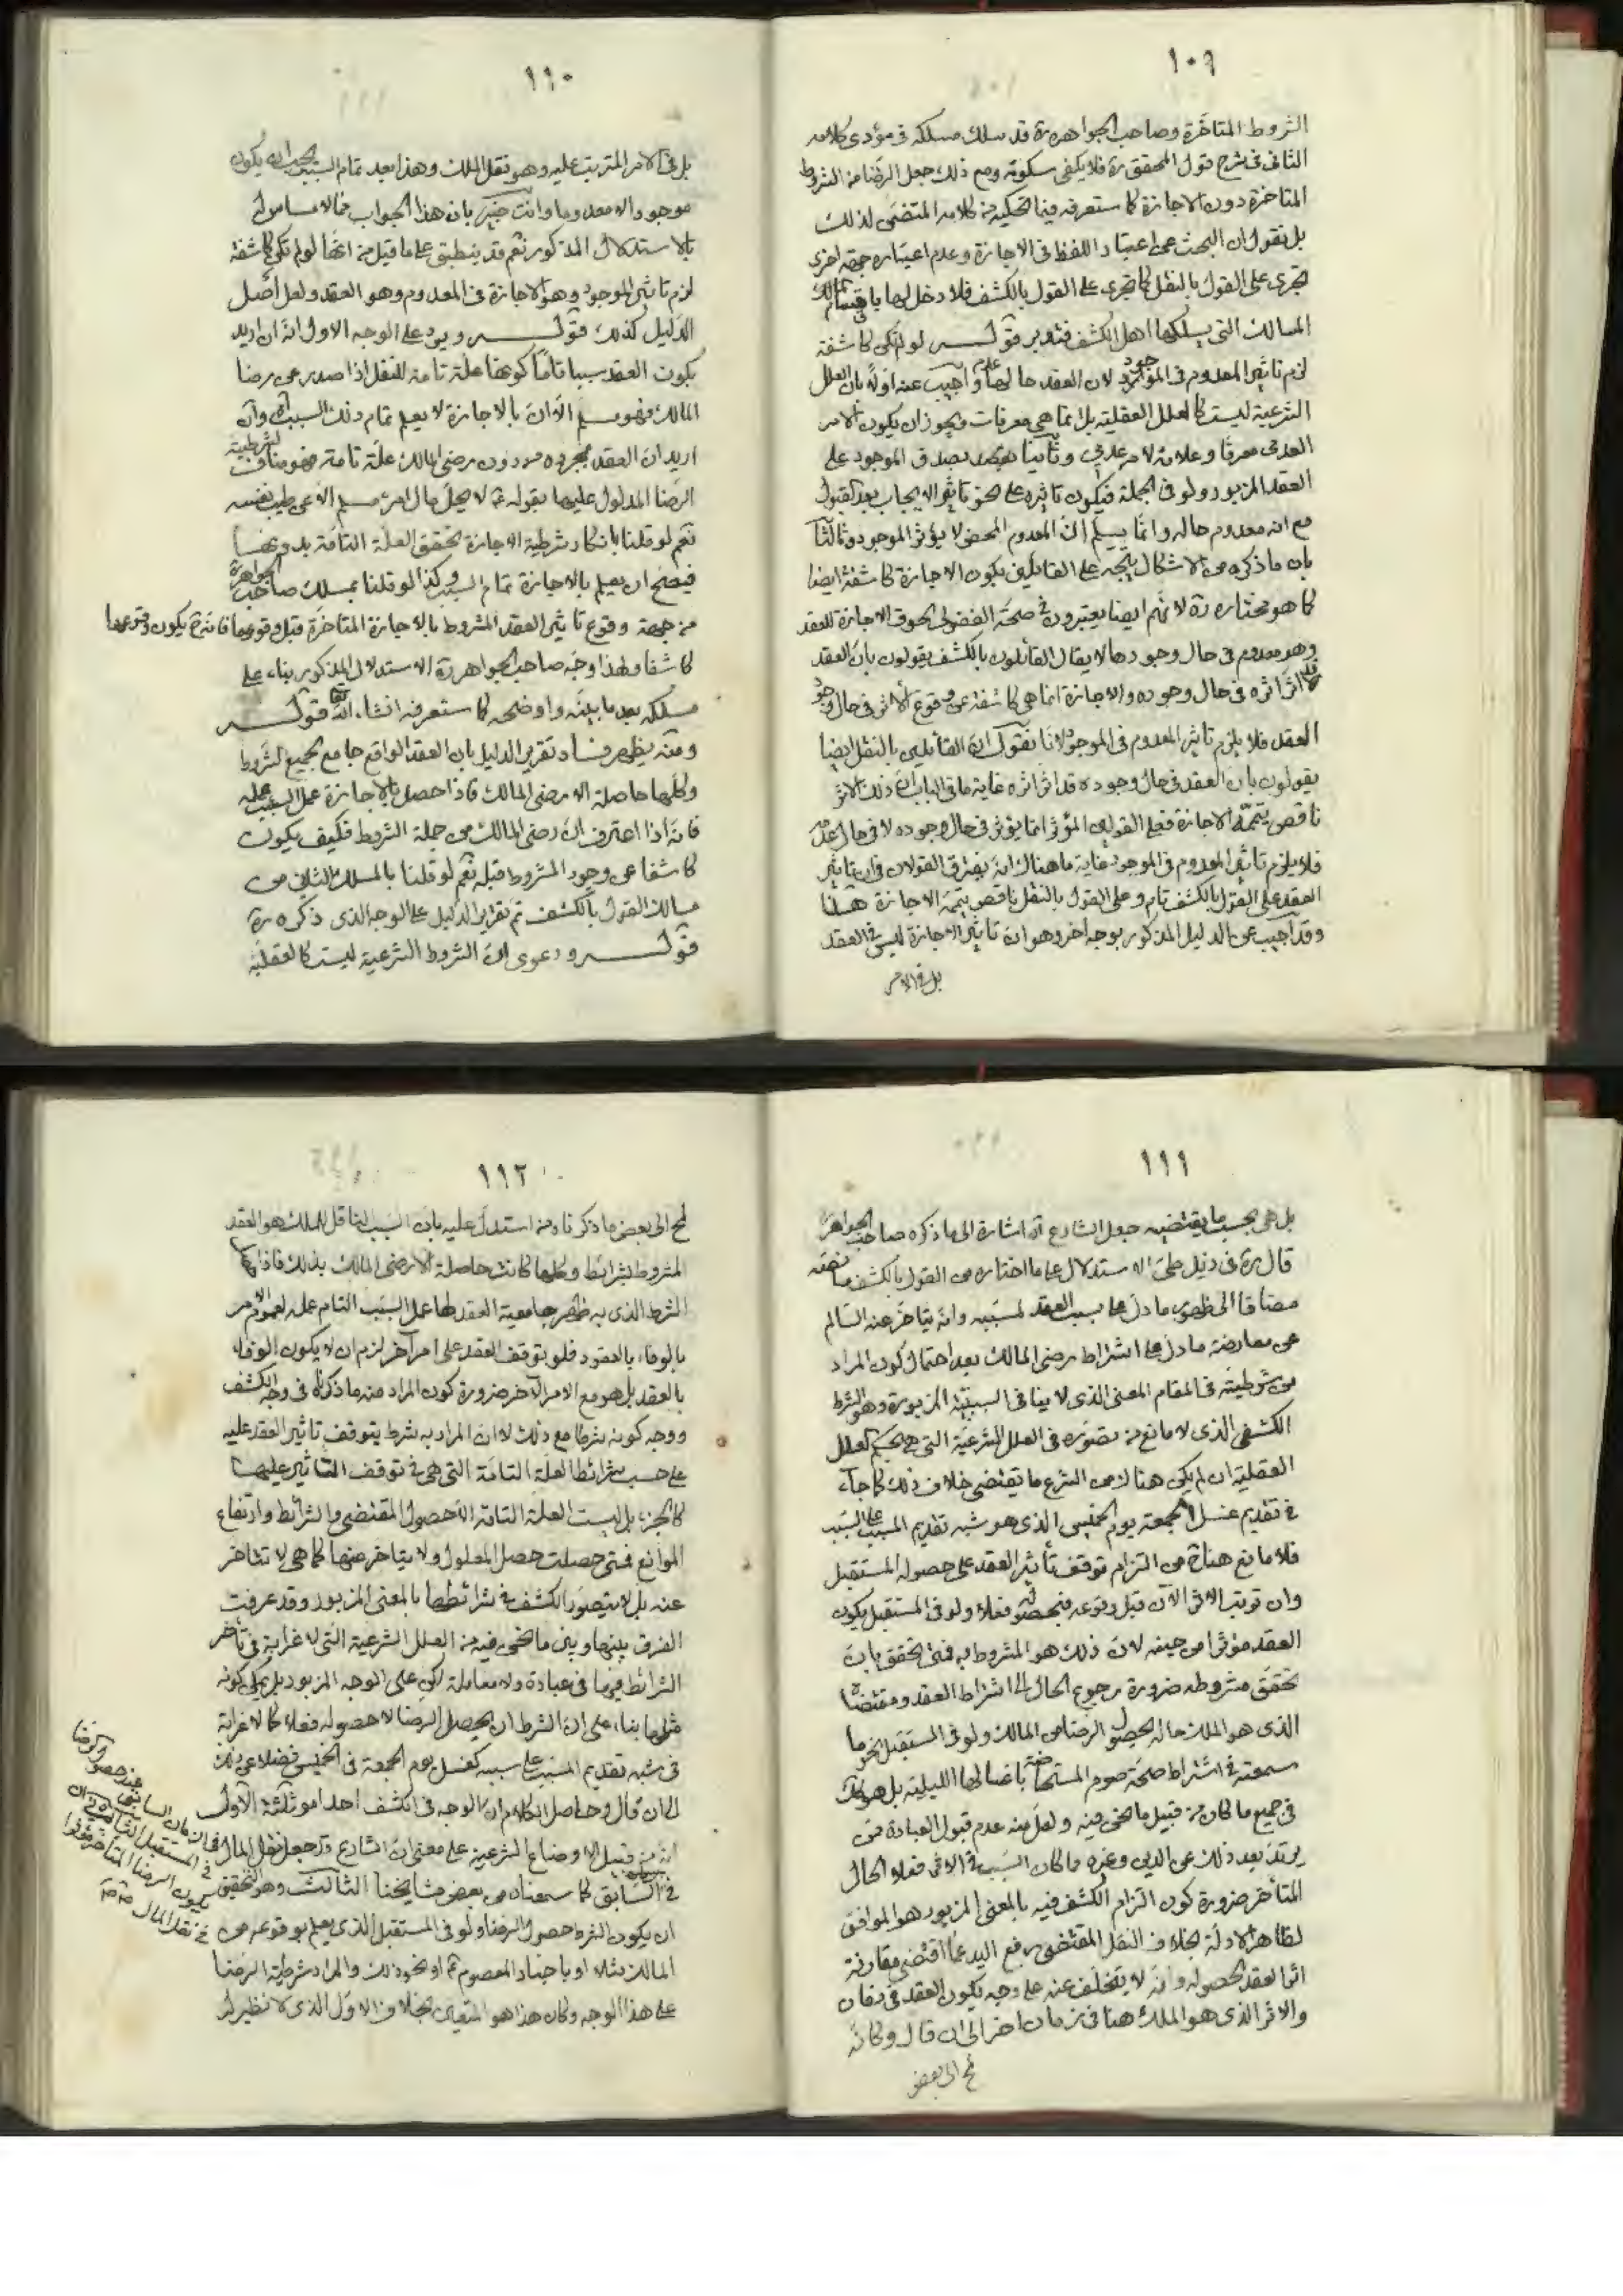 ١٠٩
الشروط المتأخرة وصاحب الجواهر ره قد سلك مسلكه في مؤدى كلامه
الثاني في شرح قول المحقق ره فلا يكفي سكوته ومع ذلك جعل الرضا من الشروط
المتأخرة دون الاجازة كما ستعرفه فيما نحكيه من كلامه المتضمن لذلك
بل نقول ان البحث عن اعتبار اللفظ في الاجازة وعدم اعتباره جهة اخرى
تجرى على القول بالنقل كما تجرى على القول بالكشف فلا دخل لها باقسام
المسالك التي يسلكها اهل الكشف فتدبر قوله لو لم تكن كاشفة
لزم تأثير المعدوم في الموجود لان العقد حالها عدم واجيب عنه اولا بان العلل
الشرعية ليست كالعلل العقلية بل انما هي معرفات ويجوز ان يكون الامر
العدمي معرفا وعلامة لامر عدمي وثانيا بصدق الموجود على
العقد المزبور ولو في الجملة فيكون تاثيره على نحو تاثير الايجاب بعد القبول
مع انه معدوم حاله وانما يسلم ان المعدوم المحض لا يؤثر الموجود وثالثا
بان ما ذكره من الاشكال يتجه على القائلين بكون الاجازة كاشفة ايضا
كما هو مختاره ره لانهم ايضا يعتبرون في صحة الفضولي لحوق الاجازة للعقد
وهو معدوم في حال وجودها لا يقال القائلون بالكشف يقولون بان العقد
قد اثر اثره في حال وجوده والاجازة انما هي كاشفة عن وقوع الاثر في حال وجود
العقد فلا يلزم تاثير المعدوم في الموجود لانا نقول ان القائلين بالنقل ايضا
يقولون بان العقد في حال وجوده قد اثر اثره غاية ما في الباب ان ذلك الاثر
ناقص يتممه الاجازة فعلى القولين المؤثر انما يؤثر في حال وجوده لا في حال عدمه
فلا يلزم تاثير المعدوم في الموجود غاية ما هناك انه يفترق القولان في ان تاثير
العقد على القول بالكشف تام وعلى القول بالنقل ناقص يتممه الاجازة هذا
وقد اجيب عن الدليل المذكور بوجه اخر وهو ان تاثير الاجازة ليس في العقد
بل في الامر
١١٠
بل في الامر المترتب عليه وهو نقل الملك وهذا بعد تمام السبب يجب ان يكون
موجودا لا معدوما وانت خبير بان هذا الجواب مما لا مساس له
بالاستدلال المذكور نعم قد ينطبق على ما قيل من انها لو لم تكن كاشفة
لزم تاثير الموجود وهو الاجازة في المعدوم وهو العقد ولعل اصل
الدليل كذلك قوله ويرد على الوجه الاول انه ان اريد
بكون العقد سببا تاما كونه علة تامة للنقل اذا صدر عن رضا
المالك فهو مسلم الا ان بالاجازة لا يعلم تمام ذلك السبب اه وان
اريد ان العقد بمجرده من دون رضى المالك علة تامة فهو مناف لشرطية
الرضا المدلول عليها بقوله ع لا يحل مال امرء مسلم الا عن طيب نفسه
نعم لو قلنا بانكار شرطية الاجازة لتحقق العلة التامة بدونها
فيصح ان يعلم بالاجازة تمام السبب وكذا لو قلنا بمسلك صاحب الجواهر ره
من جهة وقوع تاثير العقد المشروط بالاجازة المتاخرة قبل وقوعها فانه ح يكون وقوعها
كاشفا ولهذا وجه صاحب الجواهر ره الاستدلال المذكور بناء على
مسلكه بعد ما بينه واوضحه كما ستعرفه انشاء الله تعالى قوله
ومنه يظهر فساد تقرير الدليل بان العقد الواقع جامع لجميع الشروط
وكلها حاصلة الا رضى المالك فاذا حصل بالاجازة عمل السبب عمله
فانه اذا اعترف ان رضى المالك من جملة الشروط فكيف يكون
كاشفا عن وجود المشروط قبله نعم لو قلنا بالمسلك الثاني من
مسالك القول بالكشف تم تقرير الدليل على الوجه الذي ذكره ره
قوله ودعوى ان الشروط الشرعية ليست كالعقلية
١١١
بل هي بحسب ما يقتضيه جعل الشارع اه اشارة الى ما ذكره صاحب الجواهر
قال ره في ذيل طى الاستدلال على ما اختاره من القول بالكشف ما نصه
مضافا الى ظهور ما دل على سبب العقد لمسببه وانه يتاخر عنه السالم
عن معارضة ما دل على اشتراط رضى المالك بعد احتمال كون المراد
من شرطيته في المقام المعنى الذي لا ينافي السببية المزبورة وهو الشرط
الكشفي الذي لا مانع من تصوره في العلل الشرعية التي هي بحكم العلل
العقلية ان لم يكن هناك من الشرع ما يقتضى خلاف ذلك كما جاء
في تقديم غسل الجمعة يوم الخميس الذي هو شبه تقديم المسبب على السبب
فلا مانع هناح من التزام توقف تأثير العقد على حصوله المستقبل
وان ترتب الاثر الآن قبل وقوعه فبحصوله فعلا ولو في المستقبل يكون
العقد مؤثرا من حينه لان ذلك هو المشروط به فمتى تحقق بان
تحقق مشروطه ضرورة رجوع الحال الى اشتراط العقد ومقتضاه
الذي هو الملك حاله لحصول الرضا من المالك ولو في المستقبل نحو ما
سمعته في اشتراط صحة صوم المستحاضة باغسالها الليلية بل هو كك
في جميع ما كان من قبيل ما نحن فيه ولعل منه عدم قبول العبادة ممن
يرتد بعد ذلك عن الدين وغيره مما كان السبب في الاثر فعلا الحال
المتأخر ضرورة كون التزام الكشف فيه بالمعنى المزبور هو الموافق
لظاهر الادلة بخلاف النقل المقتضى رفع اليد عما اقتضى مقارنة
اثر العقد لحصوله وانه لا يتخلف عنه على وجه يكون العقد في زمان
والاثر الذي هو الملك هنا في زمان اخر الى ان قال وكانه
لمح الى بعض
١١٢
لمح الى بعض ما ذكرنا من استدل عليه بان السبب الناقل للملك هو العقد
المشروط بشرائط وكلها كانت حاصلة الا رضى المالك بذلك فاذا
الشرط الذي به ظهر جامعية العقد لها عمل السبب التام عمله لعموم الامر
بالوفاء بالعقود فلو توقف العقد على امر آخر لزم ان لا يكون الوفاء
بالعقد بل هو مع الامر الآخر ضرورة كون المراد منه ما ذكرناه في وجه الكشف
ووجه كونه شرطا مع ذلك لا ان المراد به شرط يتوقف تأثير العقد عليه
على حسب شرائط العلة التامة التي هي في توقف التأثير عليها
كالجزء بل ليست العلة التامة الا حصول المقتضى والشرائط وارتفاع
الموانع فمتى حصلت حصل المعلول ولا يتاخر عنها كما هي لا تتاخر
عنه بل لا يتصور الكشف في شرائطها بالمعنى المزبور وقد عرفت
الفرق بينها وبين ما نحن فيه من العلل الشرعية التي لا غرابة في تأخر
الشرائط فيها في عبادة ولا معاملة لكن على الوجه المزبور بل يمكن كونه
مثلها بناء على ان الشرط ان يحصل الرضا لا حصوله فعلا كما لا غرابة
في شبه تقديم المسبب على سببه كغسل يوم الجمعة في الخميس فضلا عن ذلك
الى ان قال وحاصل الكلام ان الوجه في الكشف احد امور ثلثة الاول
انه من قبيل الاوضاع الشرعية على معنى ان الشارع قد جعل نقل المال
في السابق كما سمعناه من بعض مشايخنا الثالث وهو التحقيق
ان يكون الشرط حصول الرضا ولو في المستقبل الذي يعلم بوقوعه من
المالك مثلا او باخبار المعصوم ع او نحو ذلك والمراد شرطية الرضا
على هذا الوجه وكان هذا هو المتعين بخلاف الاول الذي لا نظير له
في الزمان السابق عند حصول الرضا
في المستقبل الثاني
يكون الرضا المتأخر مؤثرا
في نقل المال